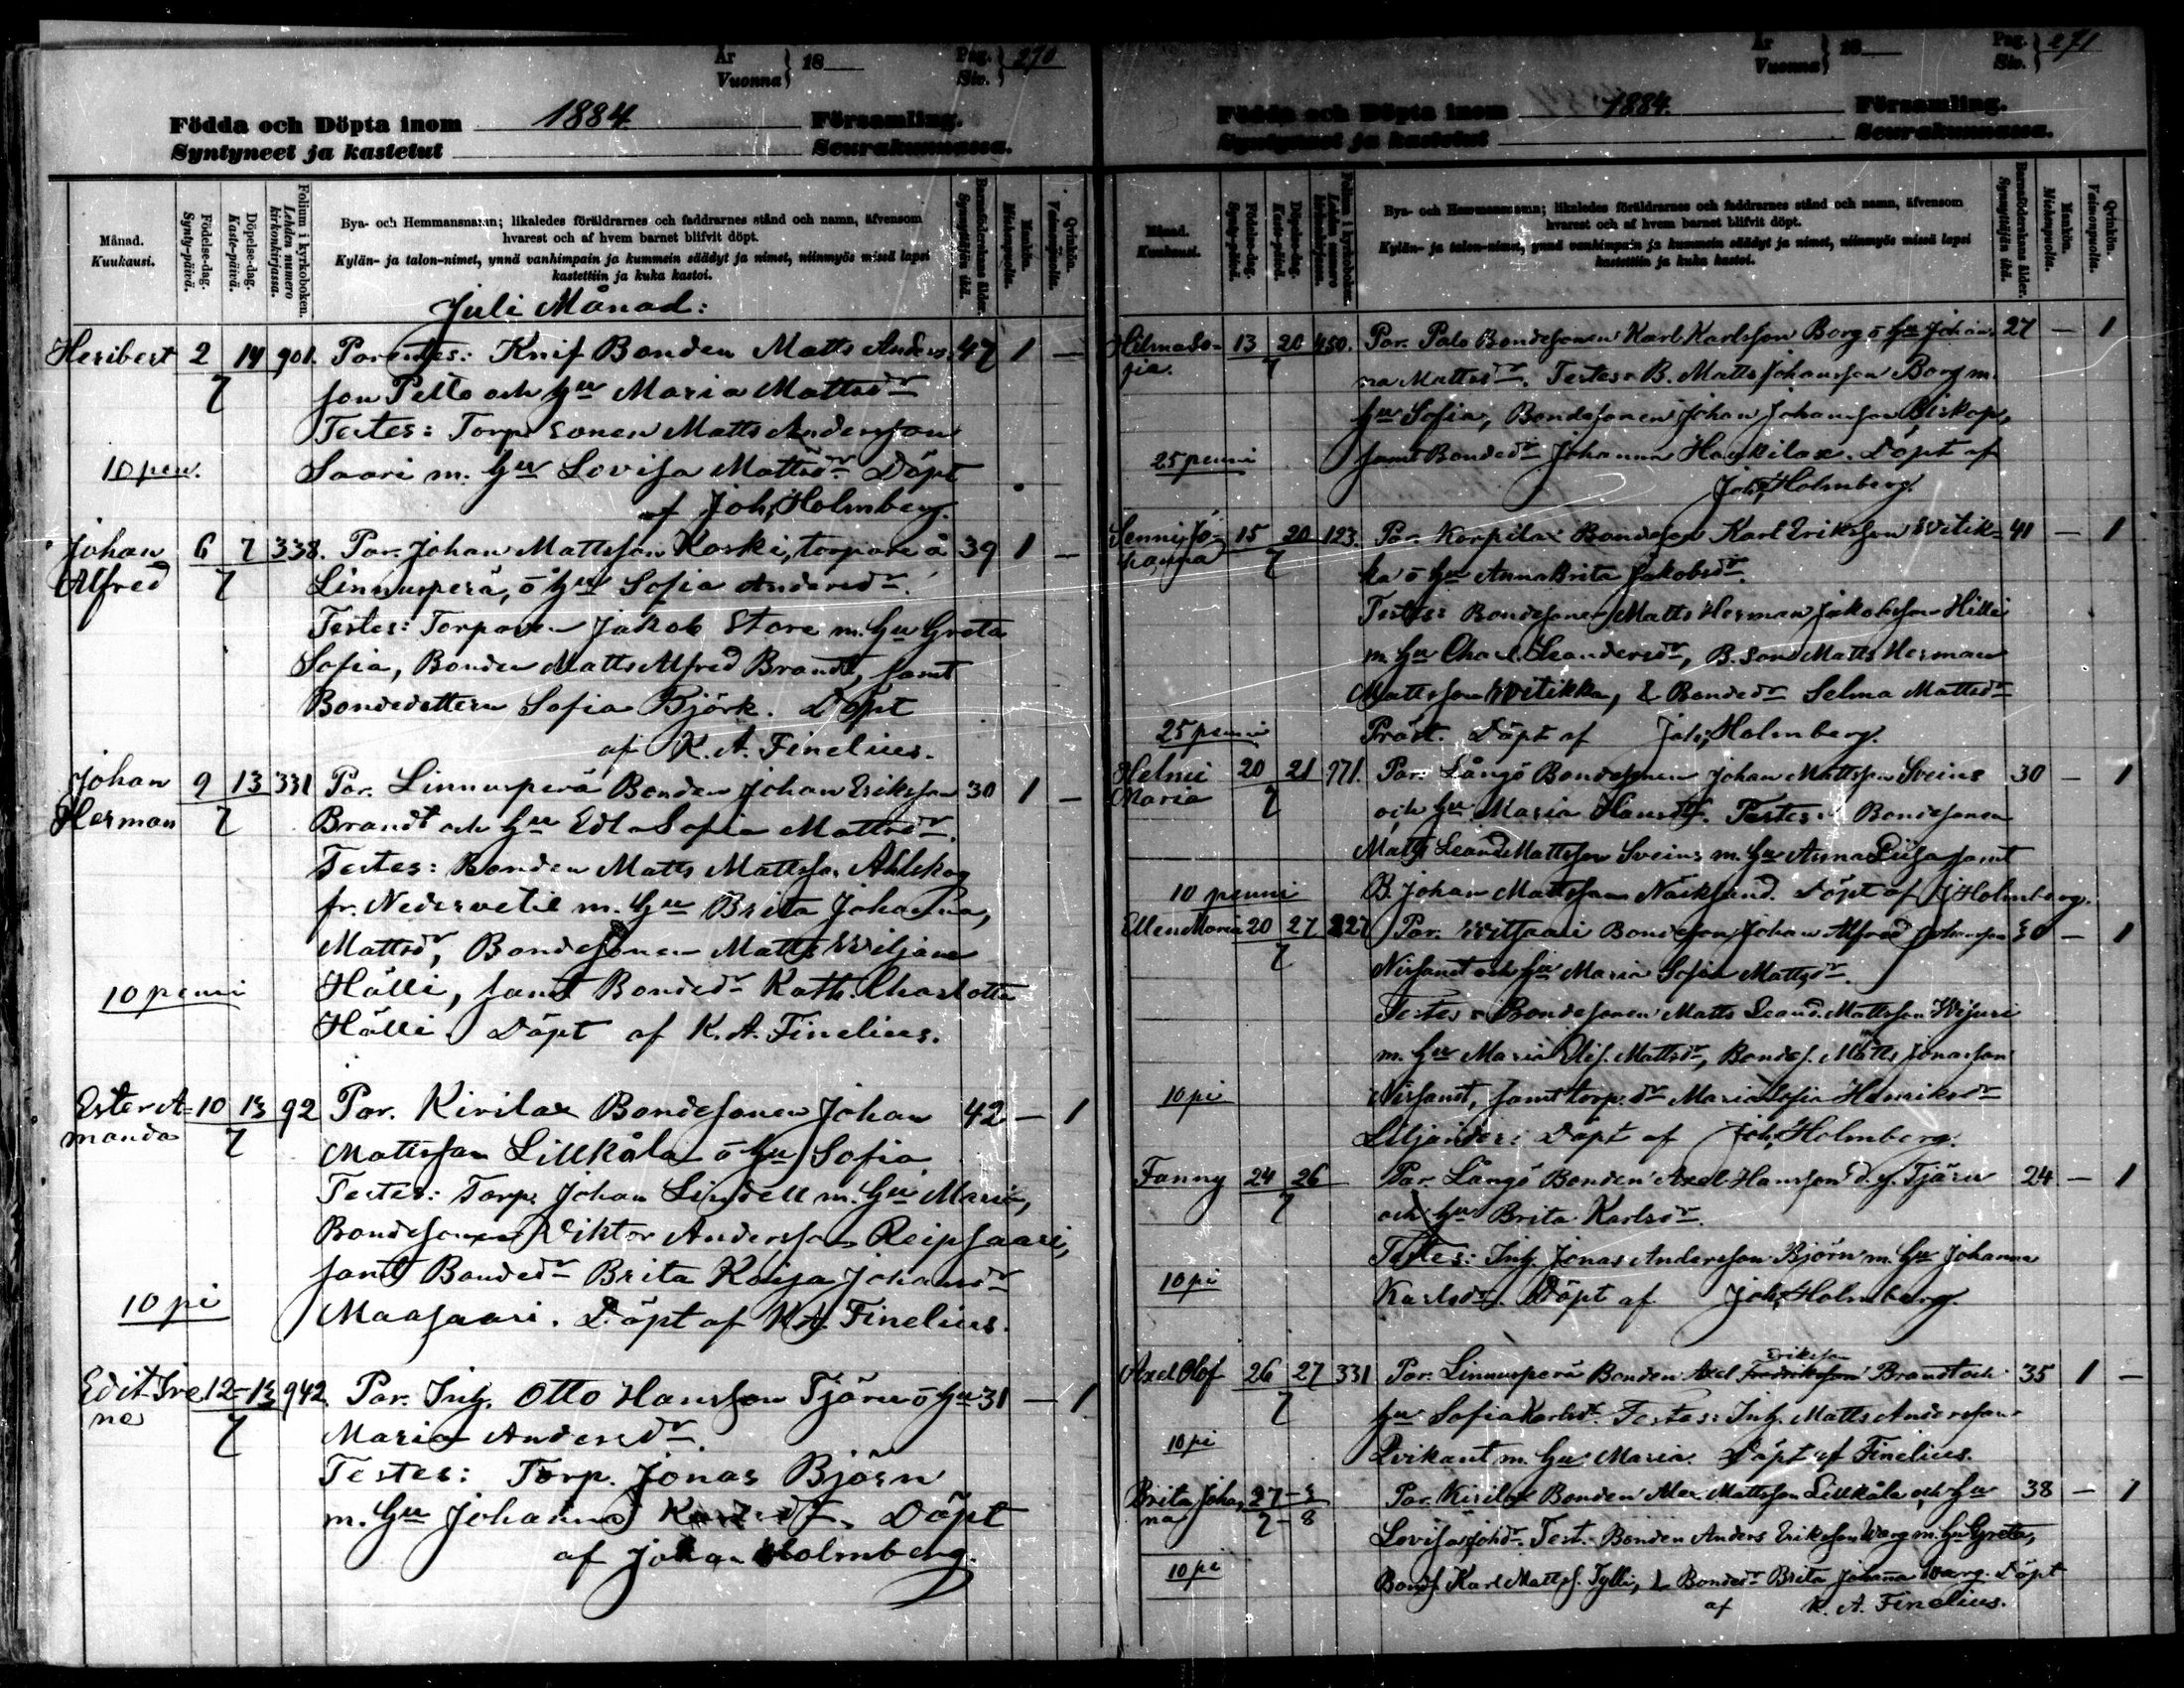 År
Vuonna } 18
Pag.
Siv. } 270
Födda och Döpta inom 1884. Församling.
Syntyneet ja kastetut Seurakunnassa.
Månad.
Kuukausi.
Födelse-dag.
Synty-päivä.
Döpelse-dag.
Kaste-päivä.
Folium i kyrkoboken.
Lehden numero kirkonkirjassa.
Bya- och Hemmansnamn; likaledes föräldrarnes och faddrarnes stånd och namn, äfvensom
hvarest och af hvem barnet blifvit döpt.
Kylän- ja talon-nimet, ynnä vanhimpain ja kummein säädyt ja nimet, niinmyös missä lapsi
kastettiin ja kuka kastoi.
Barnaföderskans ålder.
Synnyttäjän ikä.
Mankön.
Miehenpuolia.
Qvinkön.
Vaimonpuolia.
Juli Månad:
Heribert 2 14 901. Parentes: Knif Bonden Matts Anders- 47 1 —
7 son Pelto och hu Maria Mattsdr
Testes: Torp. sonen Matts Andersson
10 pen. Saari m. hu Lovisa Mattsdr Döpt
af Joh. Holmberg.
Johan 6 7 338. Par. Johan Mattsson Koski, torpare å 39 1 —
Alfred 7 Linnusperä, o hu Sofia Andersdr.
Testes: Torparen Jakob Store m. hu Greta
Sofia, Bonden Matts Alfred Brandt, samt
Bondedottern Sofia Björk. Döpt
af K. A. Finelius.
Johan 9 13 331 Par. Linnusperä Bonden Johan Eriksson 30 1 —
Herman 7 Brandt och hu Edla Sofia Mattsdr.
Testes: Bonden Matts Mattsson Ahlskog
fr. Nedervetil m. hu Brita Johanna,
Mattsdr, Bondesonen Matts Wiljam
10 penni Hälli, samt Bondedr Kath. Charlotta
Hälli. Döpt af K. A. Finelius.
Ester A- 10 13 92 Par. Kivilax Bondesonen Johan 42 — 1
manda 7 Mattsson Lillkåla o hu Sofia
Testes: Torp. Johan Lindell m. hu Maria,
Bondesonen Viktor Andersson Reipsaari,
samt Bondedr Brita Kaisa Johansdr
10 pi Maasaari. Döpt af K. A. Finelius.
Edit Ire- 12 13 942. Par. Inh. Otto Hansson Tjäru o hu 31 — 1
ne 7 Maria Andersdr.
Testes: Torp. Jonas Björn
m. hu Johanna Karlsdr. Döpt
af Johan Holmberg.
År
Vuonna } 18
Pag.
Siv. } 271
Födda och Döpta inom 1884. Församling.
Syntyneet ja kastetut Seurakunnassa.
Månad.
Kuukausi.
Födelse-dag.
Synty-päivä.
Döpelse-dag.
Kaste-päivä.
Folium i kyrkoboken.
Lehden numero kirkonkirjassa.
Bya- och Hemmansnamn; likaledes föräldrarnes och faddrarnes stånd och namn, äfvensom
hvarest och af hvem barnet blifvit döpt.
Kylän- ja talon-nimet, ynnä vanhimpain ja kummein säädyt ja nimet, niinmyös missä lapsi
kastettiin ja kuka kastoi.
Barnaföderskans ålder.
Synnyttäjän ikä.
Mankön.
Miehenpuolia.
Qvinkön.
Vaimonpuolia.
Hilma So- 13 20 450. Par. Palo Bondesonen Karl Karlsson Borg o hu Johan- 27 — 1
fia. 7 na Mattsdr. Testes: B. Matts Johansson Borg m.
hu Sofia, Bondesonen Johan Johansson Biskop,
25 penni samt Bondedr Johanna Haukilax. Döpt af
Joh. Holmberg.
Senni Jo- 15 20 123. Par. Korpilax Bondeson Karl Eriksson Witik- 41 — 1
hanna 7 ka o hu Anna Brita Jakobsdr.
Testes: Bondesonen Matts Herman Jakobsson Hilli
m. hu Charl. Leandersdr, B. son Matts Herman
Mattsson Witikka, & Bondedr Selma Mattsdr
25 penni Präst. Döpt af Joh. Holmberg.
Helmi 20 21 971. Par: Långö Bondesonen Johan Mattsson Sveins 30 — 1
Maria 7 och hu Maria Hansdr. Testes: Bondesonen
Matts Leand. Mattsson Sveins m. hu Anna Lisa samt
10 penni B. Johan Mattsson Näcksund. Döpt af J Holmberg.
Ellen Maria 20 27 227 Par. Witsaari Bondeson Johan Alfred Johansson 30 — 1
7 Nisfanst och hu Maria Sofia Mattsdr.
Testes: Bondesonen Matts Leand. Mattsson Wijuri
m. hu Maria Elis. Mattsdr, Bondes. Matts Jonasson
10 pi Nisfanst, samt torp. dr Maria Sofia Henriksdr
Liljander. Döpt af Joh. Holmberg.
Fanny 24 26 Par. Långö Bonden Axel Hansson d. y. Tjäru 24 — 1
7 och hu Brita Karlsdr.
Testes: Inh. Jonas Andersson Björn m. hu Johanna
10 pi Karlsdr. Döpt af Joh. Holmberg.
Eriksson
Axel Olof 26 27 331 Par. Linnusperä Bonden Axel Fredriksson Brandt och 35 1 —
7 hu Sofia Karlsdr. Testes: Inh. Matts Andersson
10 pi Qvikant m. hu Maria. Döpt af Finelius.
Brita Johan- 27 3 Par. Kivilax Bonden Alex Mattsson Lillkåla och hu 38 — 1
na 7 8 Lovisa Johdr. Test. Bonden Anders Eriksson Warg m. hu Greta,
10 pi Bonds. Karl Matts s. Tylli, & Bondedr Brita Johanna Warg. Döpt
af K. A. Finelius.